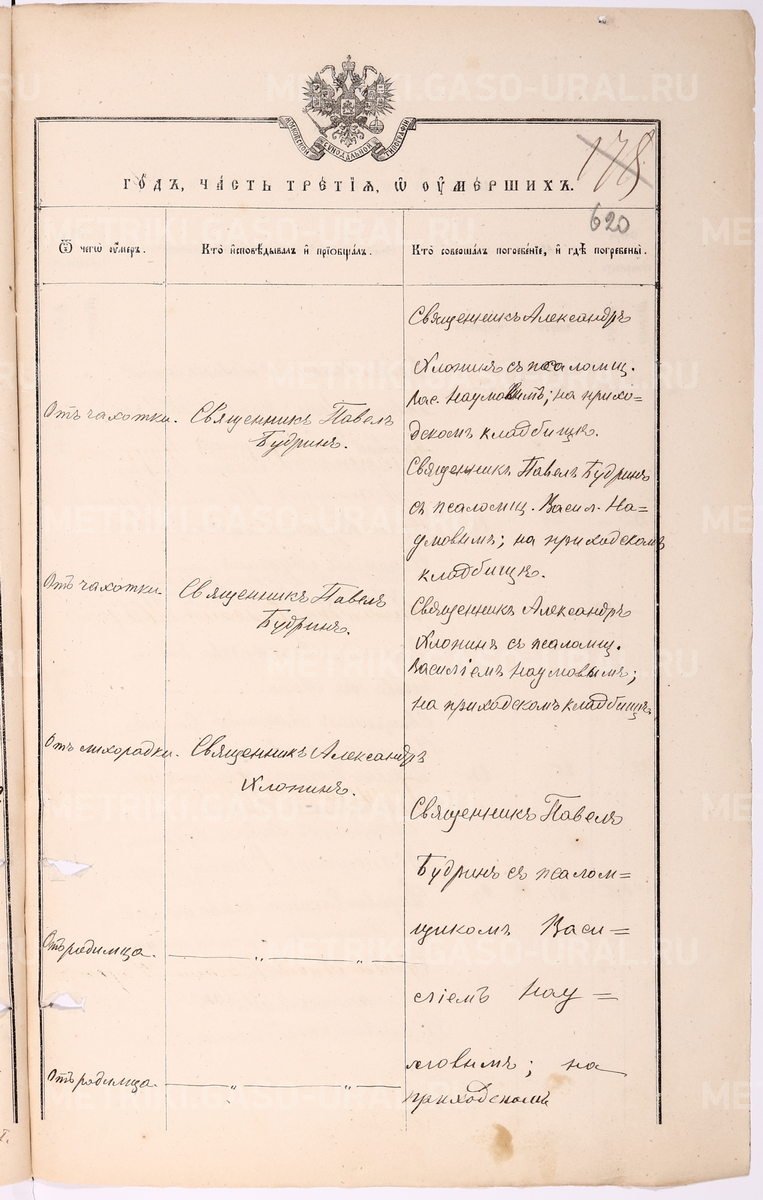 МОСКОВСКОЙ СѴНОДАЛЬНОЙ ТИПОГРАФІИ
178
ГОДЪ, ЧАСТЬ ТРЕТІЯ, Ѿ ОУМЕРШИХЪ.
620
Ѿ чегѡ оумеръ.
Кто исповѣдывалъ и пріобщалъ.
Кто совершалъ погребеніе, и гдѣ погребены.
Отъ чахотки.
Священникъ Павелъ
Будринъ.
Священникъ Александръ
Хлопинъ съ псаломщ.
Вас. Наумовымъ; на прихо=
дскомъ кладбищѣ.
Отъ чахотки.
Священникъ Павелъ
Будринъ.
Священникъ Павелъ Будринъ
съ псаломщ. Васил. На=
умовымъ; на приходскомъ
кладбищѣ.
Отъ лихорадки.
Священникъ Александръ
Хлопинъ.
Священникъ Александръ
Хлопинъ съ псаломщ.
Василіемъ Наумовымъ;
на приходскомъ кладбищѣ.
Отъ родимца.
— „ — „ —
Отъ родимца.
— „ — „ —
Священникъ Павелъ
Будринъ съ псалом=
щикомъ Васи=
ліемъ Нау=
мовымъ; на
приходскомъ
METRIKI.GASO-URAL.RU